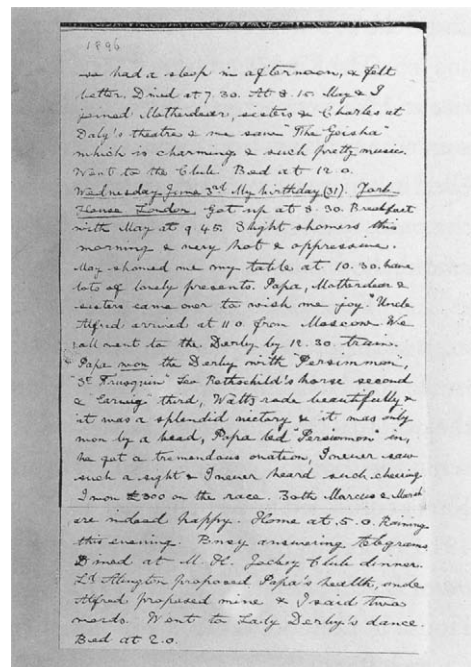 1896
we had a sleep in afternoon, & felt
better. Dined at 7.30. At 8.15 May & I
joined Motherdear, sisters & Charles at
Daly's theatre & we saw "The Geisha"
which is charming & such pretty music.
Went to the Club. Bed at 12.0.
Wednesday June 3rd My birthday (31). York
House London. Got up at 8.30. Breakfast
with May at 9.45. Slight showers this
morning & very hot & oppressive.
May showed me my table at 10.30. have
lots of lovely presents. Papa, Motherdear &
sisters came over to wish me joy. Uncle
Alfred arrived at 11.0 from Moscow. We
all went to the Derby by 12.30 train.
Papa won the Derby with "Persimmon",
"St Frusquin" Leo Rothschild's horse second
& "Earwig" third, Watts rode beautifully &
it was a splendid victory & it was only
won by a head, Papa led "Persimmon" in,
he got a tremendous ovation, I never saw
such a sight & I never heard such cheering
I won £300 on the race. Both Marcus & Marsh
are indeed happy. Home at 5.0. Raining
this evening. Busy answering telegrams
Dined at M. H. Jockey Club dinner.
Ld Alington proposed Papa's health, uncle
Alfred proposed mine & I said two
words. Went to Lady Derby's dance.
Bed at 2.0.